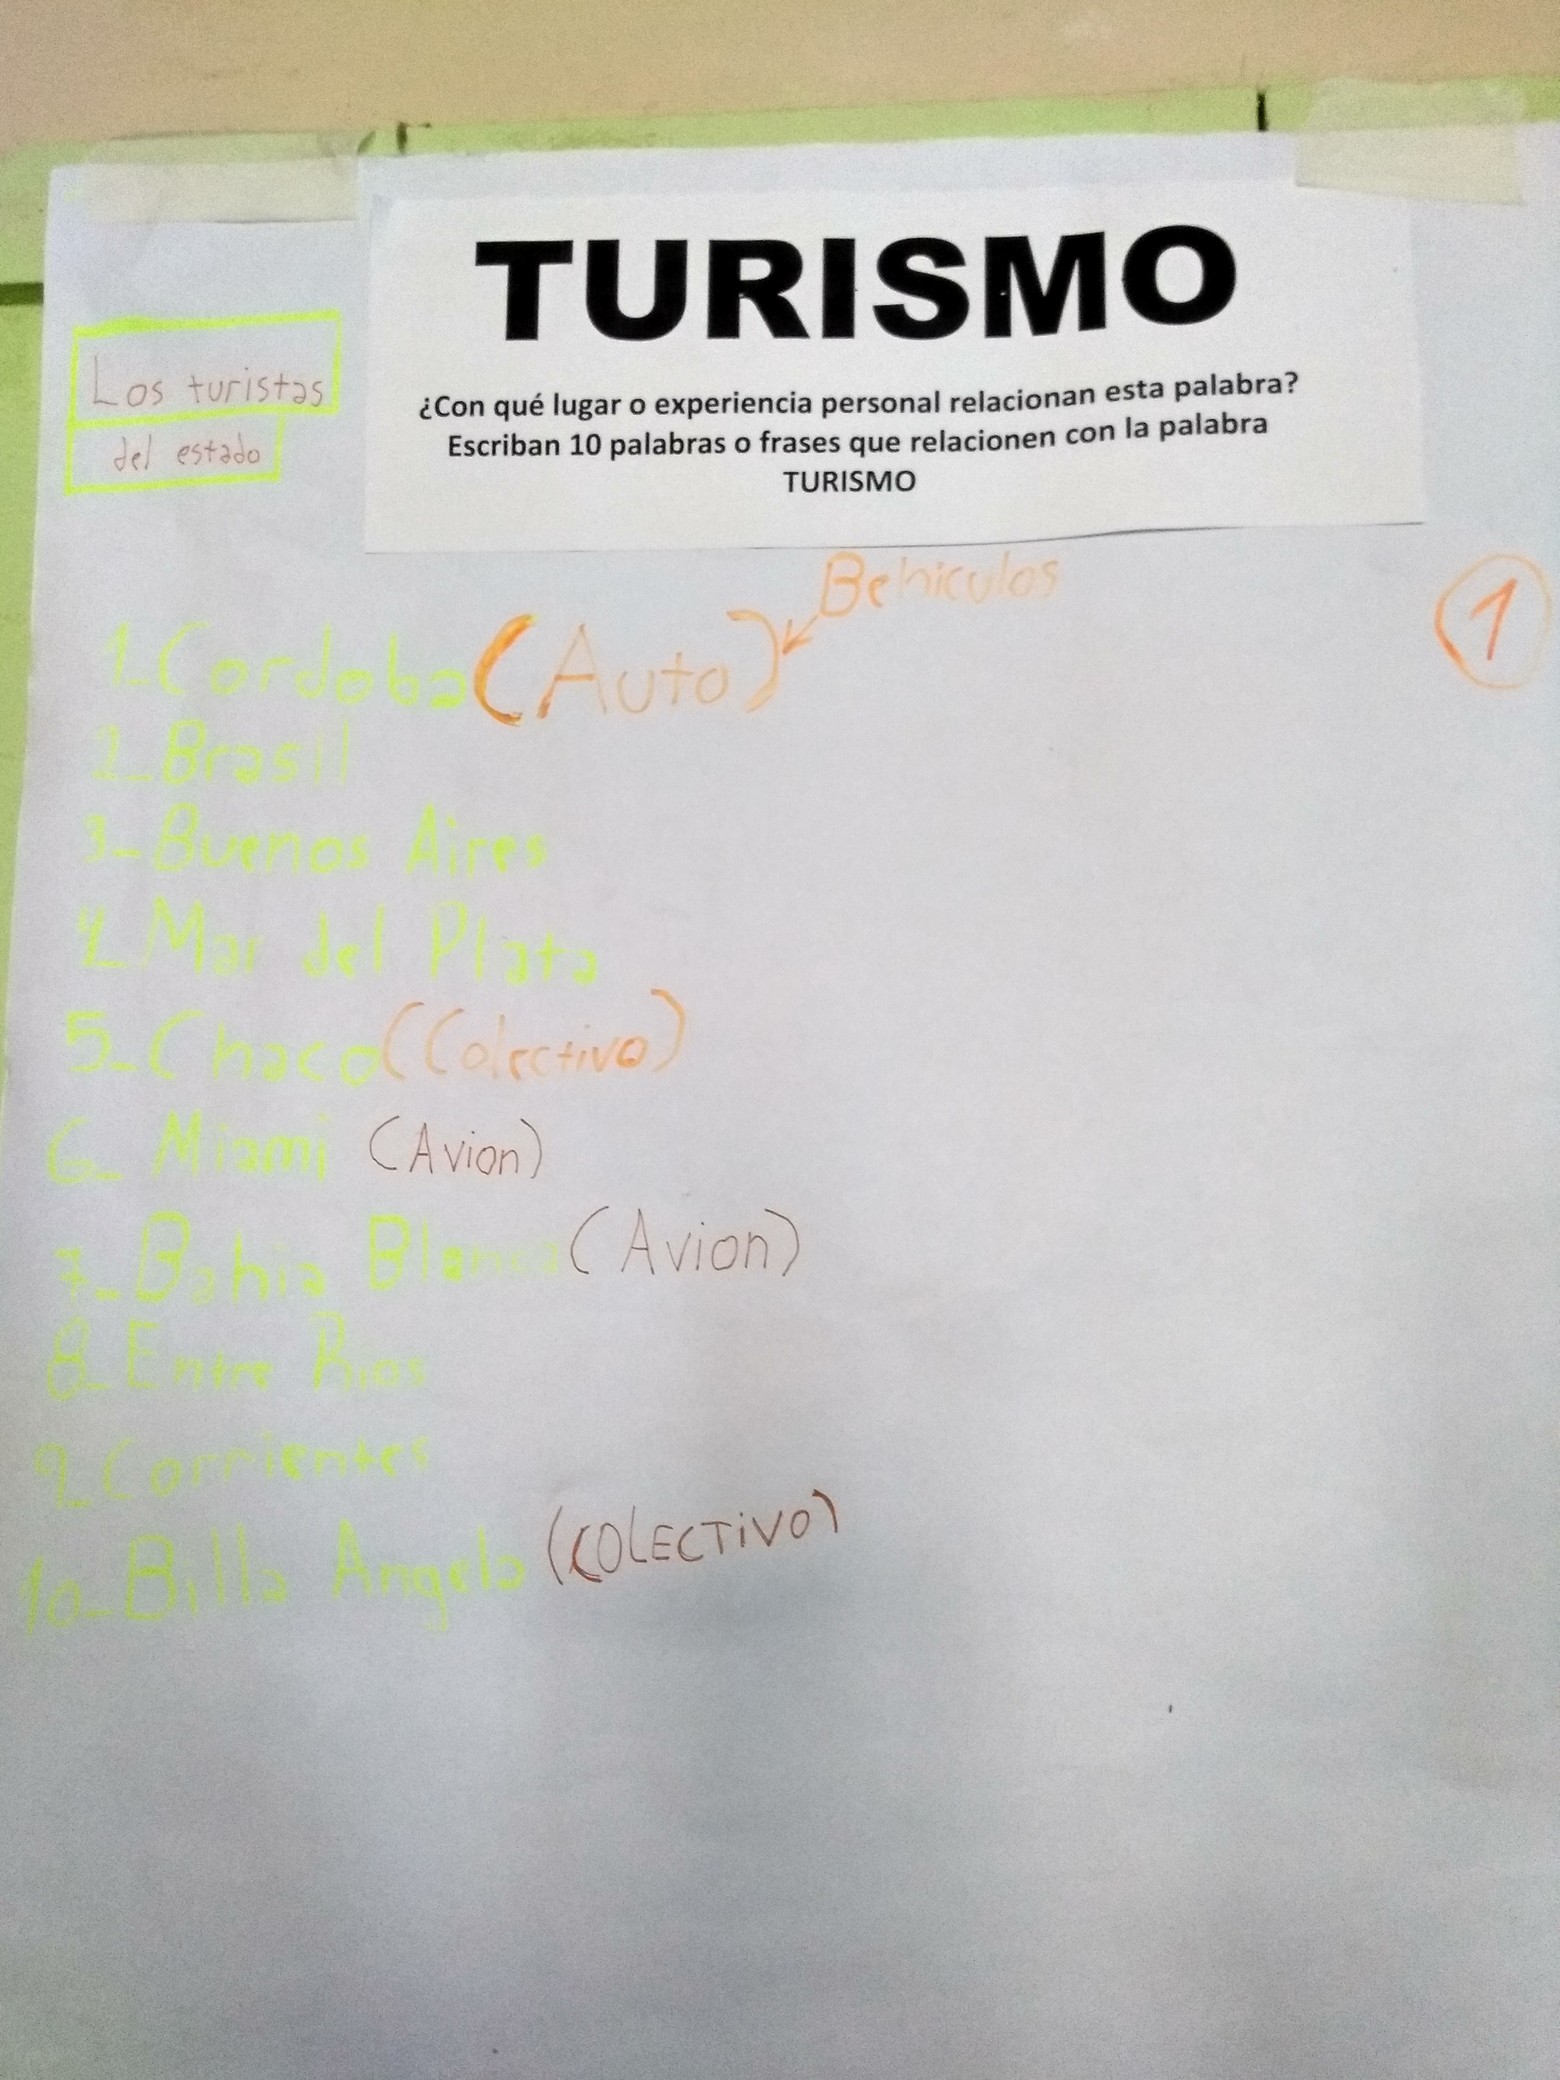 TURISMO
¿Con qué lugar o experiencia personal relacionan esta palabra?
Escriban 10 palabras o frases que relacionen con la palabra
TURISMO
Los turistas
del estado
Behiculos
1
1_Cordoba (Auto)
2_Brasil
3_Buenos Aires
4_Mar del Plata
5_Chaco (Colectivo)
6_Miami (Avion)
7_Bahia Blanca (Avion)
8_Entre Rios
9_Corrientes
10_Billa Angela (COLECTiVO)